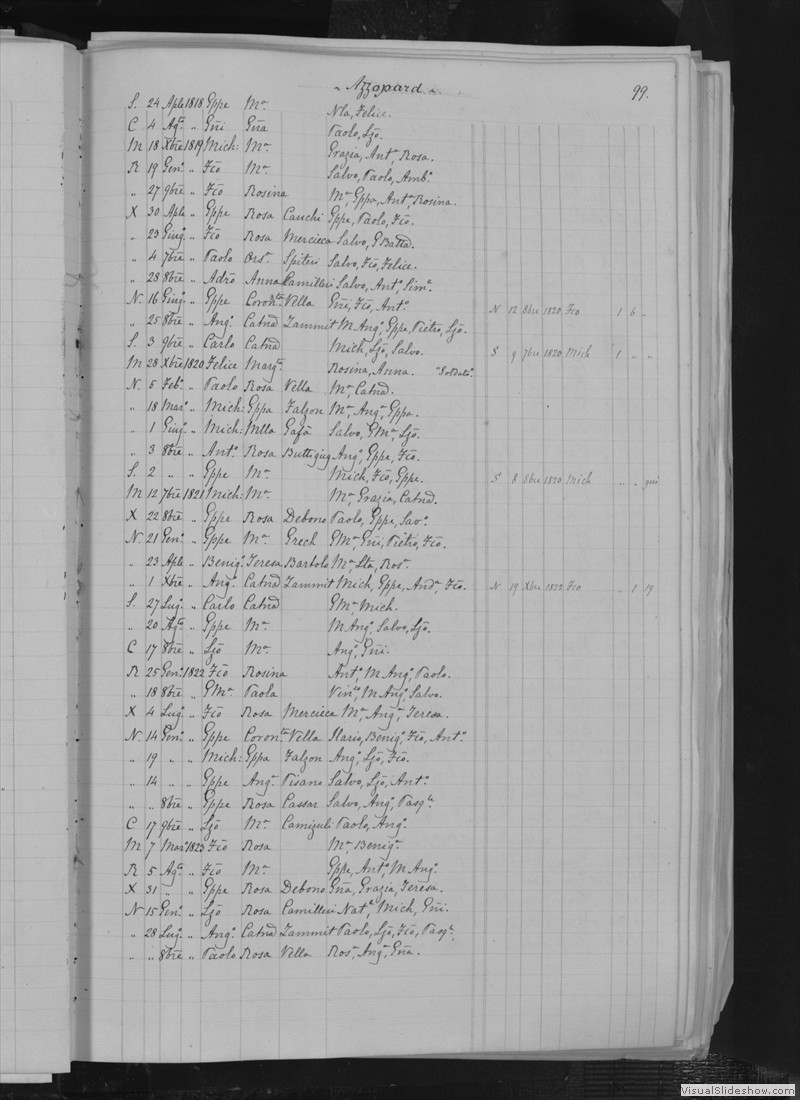 „ Azzopard „ 99.
S. 24 Aple 1818 Gppe Ma Nla, Felice.
C 4 Agto „ Gñi Gña Paolo, Ljō.
M 18 Xbre 1819 Mich: Ma Grazia, Anta, Rosa.
R 19 Geno „ Fcō Ma Salvo, Paolo, Ambo.
„ 27 9bre „ Fcō Rosina Ma, Gppa, Anta, Rosina.
X 30 Aple „ Gppe Rosa Cauchi Gppe, Paolo, Fcō.
„ 23 Giugo „ Fcō Rosa Mercieca Salvo, GBatta.
„ 4 7bre „ Paolo Orsa Spiteri Salvo, Fcō, Felice.
„ 28 8bre „ Adrō Anna Camilleri Salvo, Anto, Simo.
N. 16 Giugo „ Gppe Coronta Vella Gñi, Fcō, Anto. N 12 8bre 1820 Fcō 1 6 „
„ 25 8bre „ Ango Catnā Zammit M Anga, Gppe, Pietro, Ljō.
S. 3 9bre „ Carlo Catnā Mich, Ljō, Salvo. S 9 7bre 1820 Mich 1 „ „
M 28 Xbre 1820 Felice Marga Rosina, Anna. "Soldato"
N. 5 Febo „ Paolo Rosa Vella Ma, Catnā.
„ 18 Maro „ Mich: Gppa Falzon Ma, Anga, Gppa.
„ 1 Giugo „ Mich: Mlla Gafà Salvo, GMa, Ljō.
„ 3 8bre „ Anto Rosa Buttigieg Ango, Gppe, Fcō.
S. 2 „ „ Gppe Ma Mich, Fcō, Gppe. S 8 8bre 1820 Mich „ „
M 12 7bre 1821 Mich: Ma Ma, Grazia, Catnā.
X 22 8bre „ Gppe Rosa Debono Paolo, Gppe, Savo.
N. 21 Geno „ Gppe Ma Grech GMa, Gñi, Pietro, Fcō.
„ 23 Aple „ Benigo Teresa Bartolo Ma, Lta, Rosa.
„ 1 Xbre „ Ango Catnā Zammit Mich, Gppe, Anda, Fcō. N 19 Xbre 1822 Fcō „ 1 19
S. 27 Lugo „ Carlo Catnā GMa, Mich.
„ 20 Agto „ Gppe Ma M Anga, Salvo, Ljō.
C 17 8bre „ Ljō Ma Ango, Gñi.
R 25 Geno 1822 Fcō Rosina Anto, M Anga, Paolo.
„ 18 8bre „ GMa Paola Vinzo, M Anga, Salvo.
X 4 Lugo „ Fcō Rosa Mercieca Ma, Anga, Teresa.
N. 14 Geno „ Gppe Coronta Vella Ilario, Benigo, Fcō, Anto.
„ 19 „ „ Mich: Gppa Falzon Ango, Ljō, Fcō.
„ 14 „ „ Gppe Anga Pisano Salvo, Ljō, Anto.
„ „ 8bre „ Gppe Rosa Cassar Salvo, Ango, Pasqle.
C 17 9bre „ Ljō Ma Camizuli Paolo, Ango.
M 7 Maro 1823 Fcō Rosa Ma, Beniga.
R 5 Agto „ Fcō Ma Gppe, Anto, M Anga.
X 31 „ „ Gppe Rosa Debono Gña, Grazia, Teresa.
N 15 Geno „ Ljō Rosa Camilleri Natle, Mich, Gñi.
„ 28 Lugo „ Ango Catnā Zammit Paolo, Ljō, Fcō, Pasqle.
„ „ 8bre „ Paolo Rosa Vella Rosa, Anga, Gña.
VisualSlideshow.com